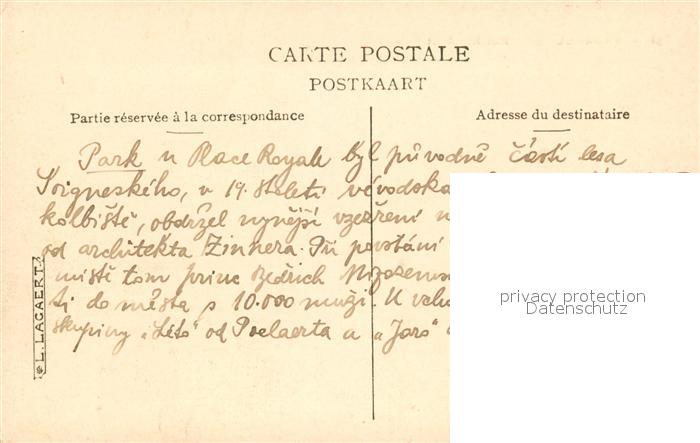 CARTE POSTALE
POSTKAART
Partie réservée à la correspondance
Adresse du destinataire
Park u Place Royale byl původně částí lesa
Soigneského, v 19. století vévodska
kolbiště, obdržel nynější vzezření
od architekta Zinnera. Při povstání
místě tom princ Bedrich Nizozems
ti do města s 10.000 muži. U
skupiny „Léto" od Poelaerta a „Jaro"
© L. LAGAERT.
privacy protection
Datenschutz